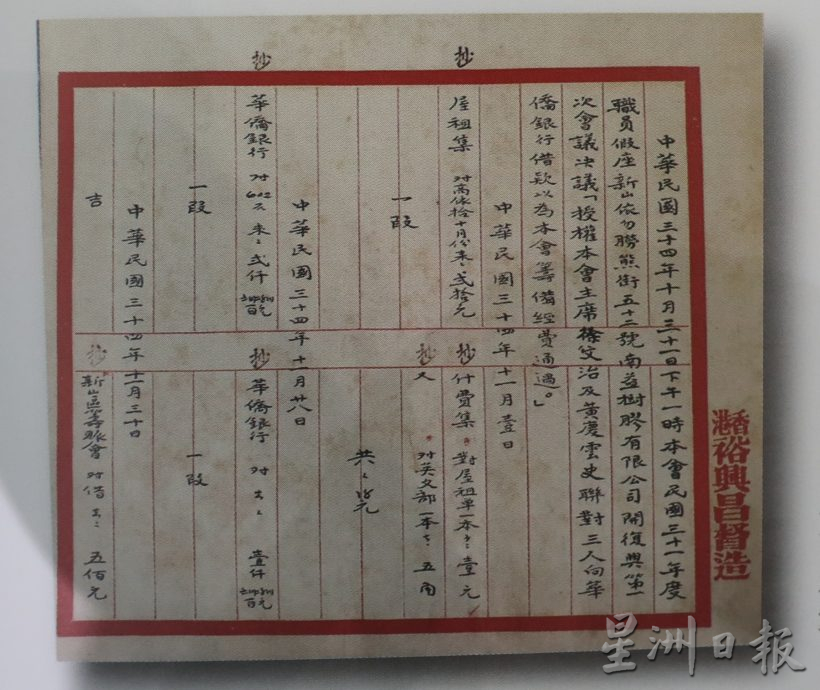 中華民國三十四年十月三十一日下午一時本會民國三十一年度
職員假座新山依勿勝熊街五十二號南益樹膠有限公司開復興第一
次會議決議「授權本會主席徐文治及黃慶雲史聯對三人向華
僑銀行借款以為本會籌備經費通過。」
中華民國三十四年十一月壹日
抄 屋租集 对高依拾十月份來 弍拾元
抄 什費集 對屋租單一本 壹元
抄 又 对英文部一本 五角
一段
共
中華民國三十四年十一月廿八日
抄 華僑銀行 对 602 來 弍仟
抄 華僑銀行 对 壹仟
一段
一段
中華民國三十四年十一月三十日
吉
抄 新山 籌賑會 对借 五佰元
裕興昌督造
星洲日報